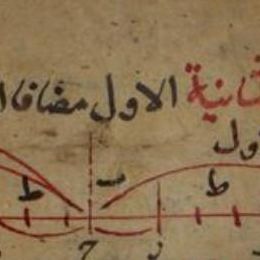 ثانية الاول مضافا ا
ول
ط ب ط
ح ز